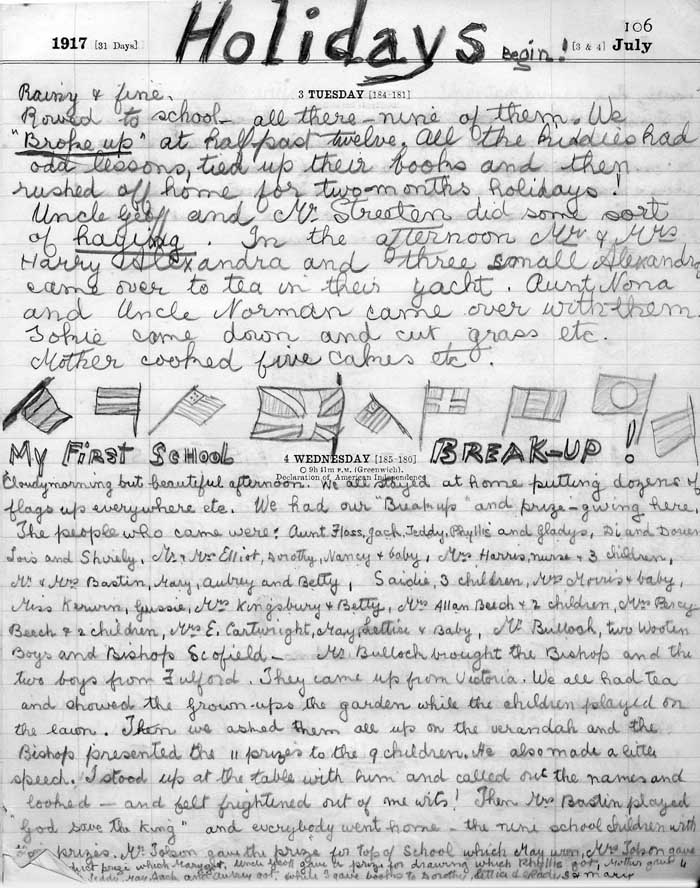 Holidays Begin!
106
1917 [31 Days] [3 & 4] July
3 TUESDAY [184-181]
Rainy & fine.
Rowed to school - all there - nine of them. We
"Broke up" at half-past twelve. All the kiddies had
odd lessons, tied up their books and then
rushed off home for two-months holidays!
Uncle Geoff and Mr Streaten did some sort
of haying. In the afternoon Mr & Mrs
Harry Alexandra and three small Alexandra
came over to tea in their yacht. Aunt Nona
and Uncle Norman came over with them.
came down and cut grass etc.
Mother cooked five cakes etc.
My First School BREAK-UP!
4 WEDNESDAY [185-180]
9h 41m P.M. (Greenwich).
Declaration of American Independence
Cloudy morning but beautiful afternoon. We all stayed at home putting dozens of
flags up everywhere etc. We had our "Break up" and prize-giving here.
The people who came were: Aunt Floss, Jack, Teddy, Phyllis and Gladys, Di and
Lois and Shirely, Mr & Mrs Elliot, Dorothy, Nancy & baby, Mrs Harris, nurse & 3 children,
Mr & Mrs Bastin, Mary, Aubrey and Betty, Saidie, 3 children, Mrs Morris & baby,
Miss Kerwin, Gussie, Mrs Kingsbury & Betty, Mrs Allan Beech & 2 children, Mrs Percy
Beech & 2 children, Mrs E. Cartwright, May, Lettice & Baby, Mr Bulloch, two Wooten
Boys and Bishop Scofield - Mr Bulloch brought the Bishop and the
two boys from Fulford. They came up from Victoria. We all had tea
and showed the grown-ups the garden while the children played on
the lawn. Then we asked them all up on the verandah and the
Bishop presented the 11 prizes to the 9 children. He also made a little
speech. I stood up at the table with him and called out the names and
looked - and felt frightened out of me wits! Then Mrs Bastin played
"God save the King" and everybody went home - the nine school children with
prizes. Mr Tolson gave the prize for top of School which May won, Mrs Tolson gave
prize which Mary got, Uncle Geoff gave a prize for drawing which Phyllis got, Mother gave
Teddy, May, Jack and Aubrey got, while I gave books to Dorothy, Lettice & Gladys. So many